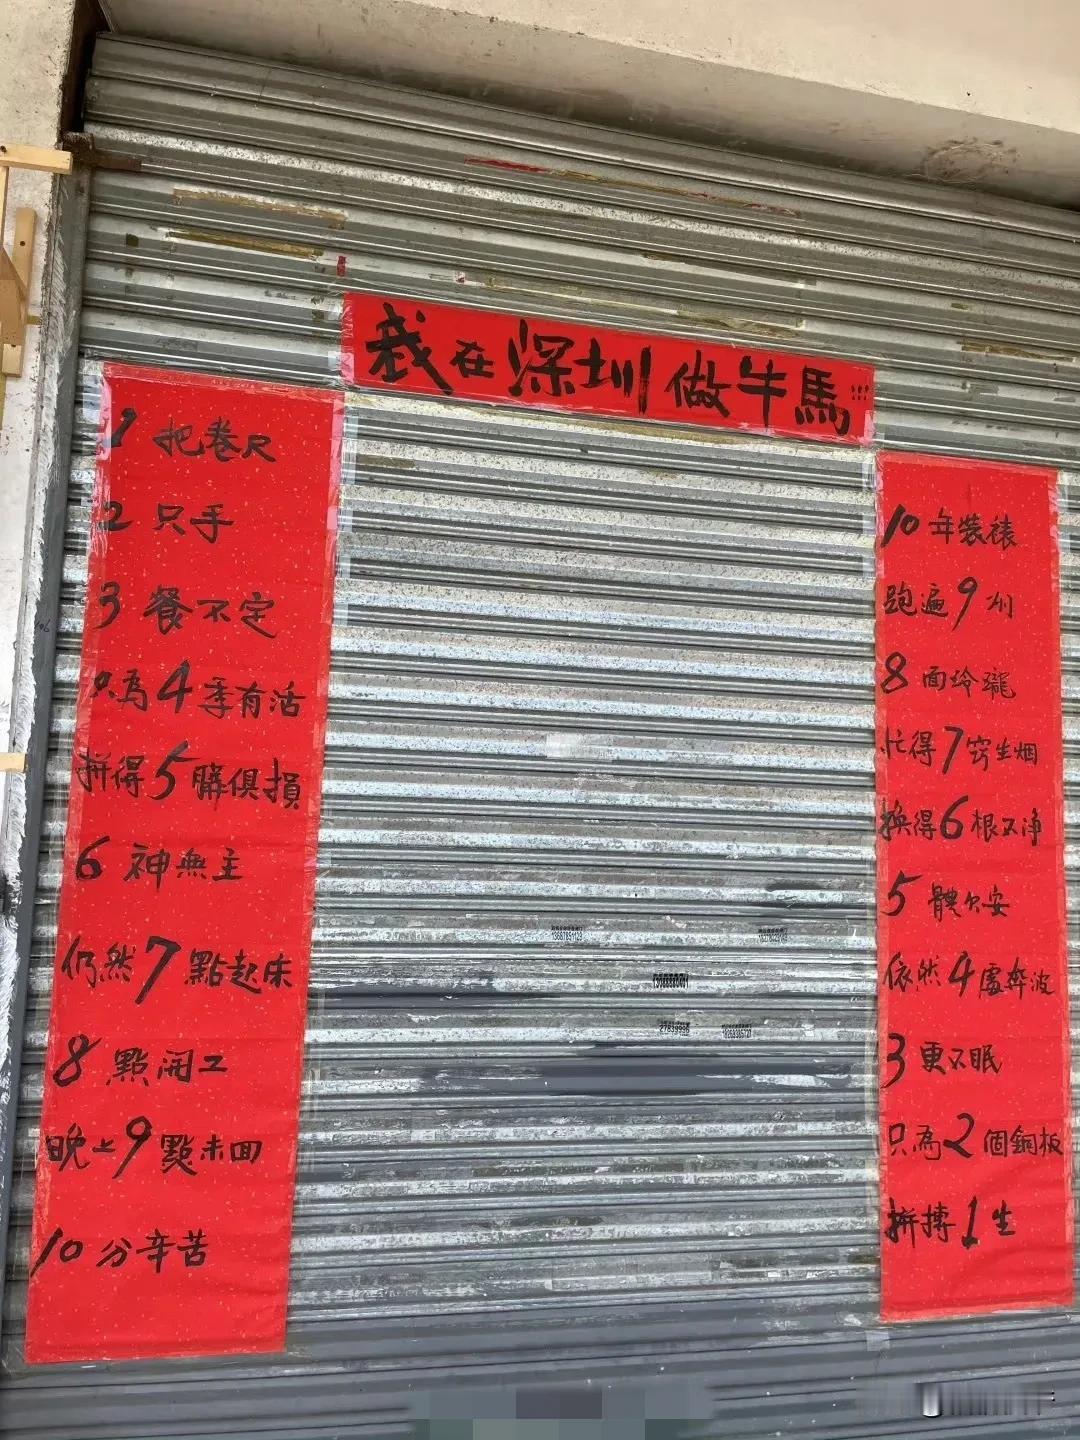 我在深圳做牛馬!!!
1把卷尺
2只手
3餐不定
只為4季有活
拼得5臟俱損
6神無主
仍然7點起床
8點開工
晚上9點未回
10分辛苦
10年装裱
跑遍9州
8面玲瓏
忙得7窍生烟
换得6根又净
5體欠安
依然4處奔波
3更不眠
只為2個銅板
拼搏1生